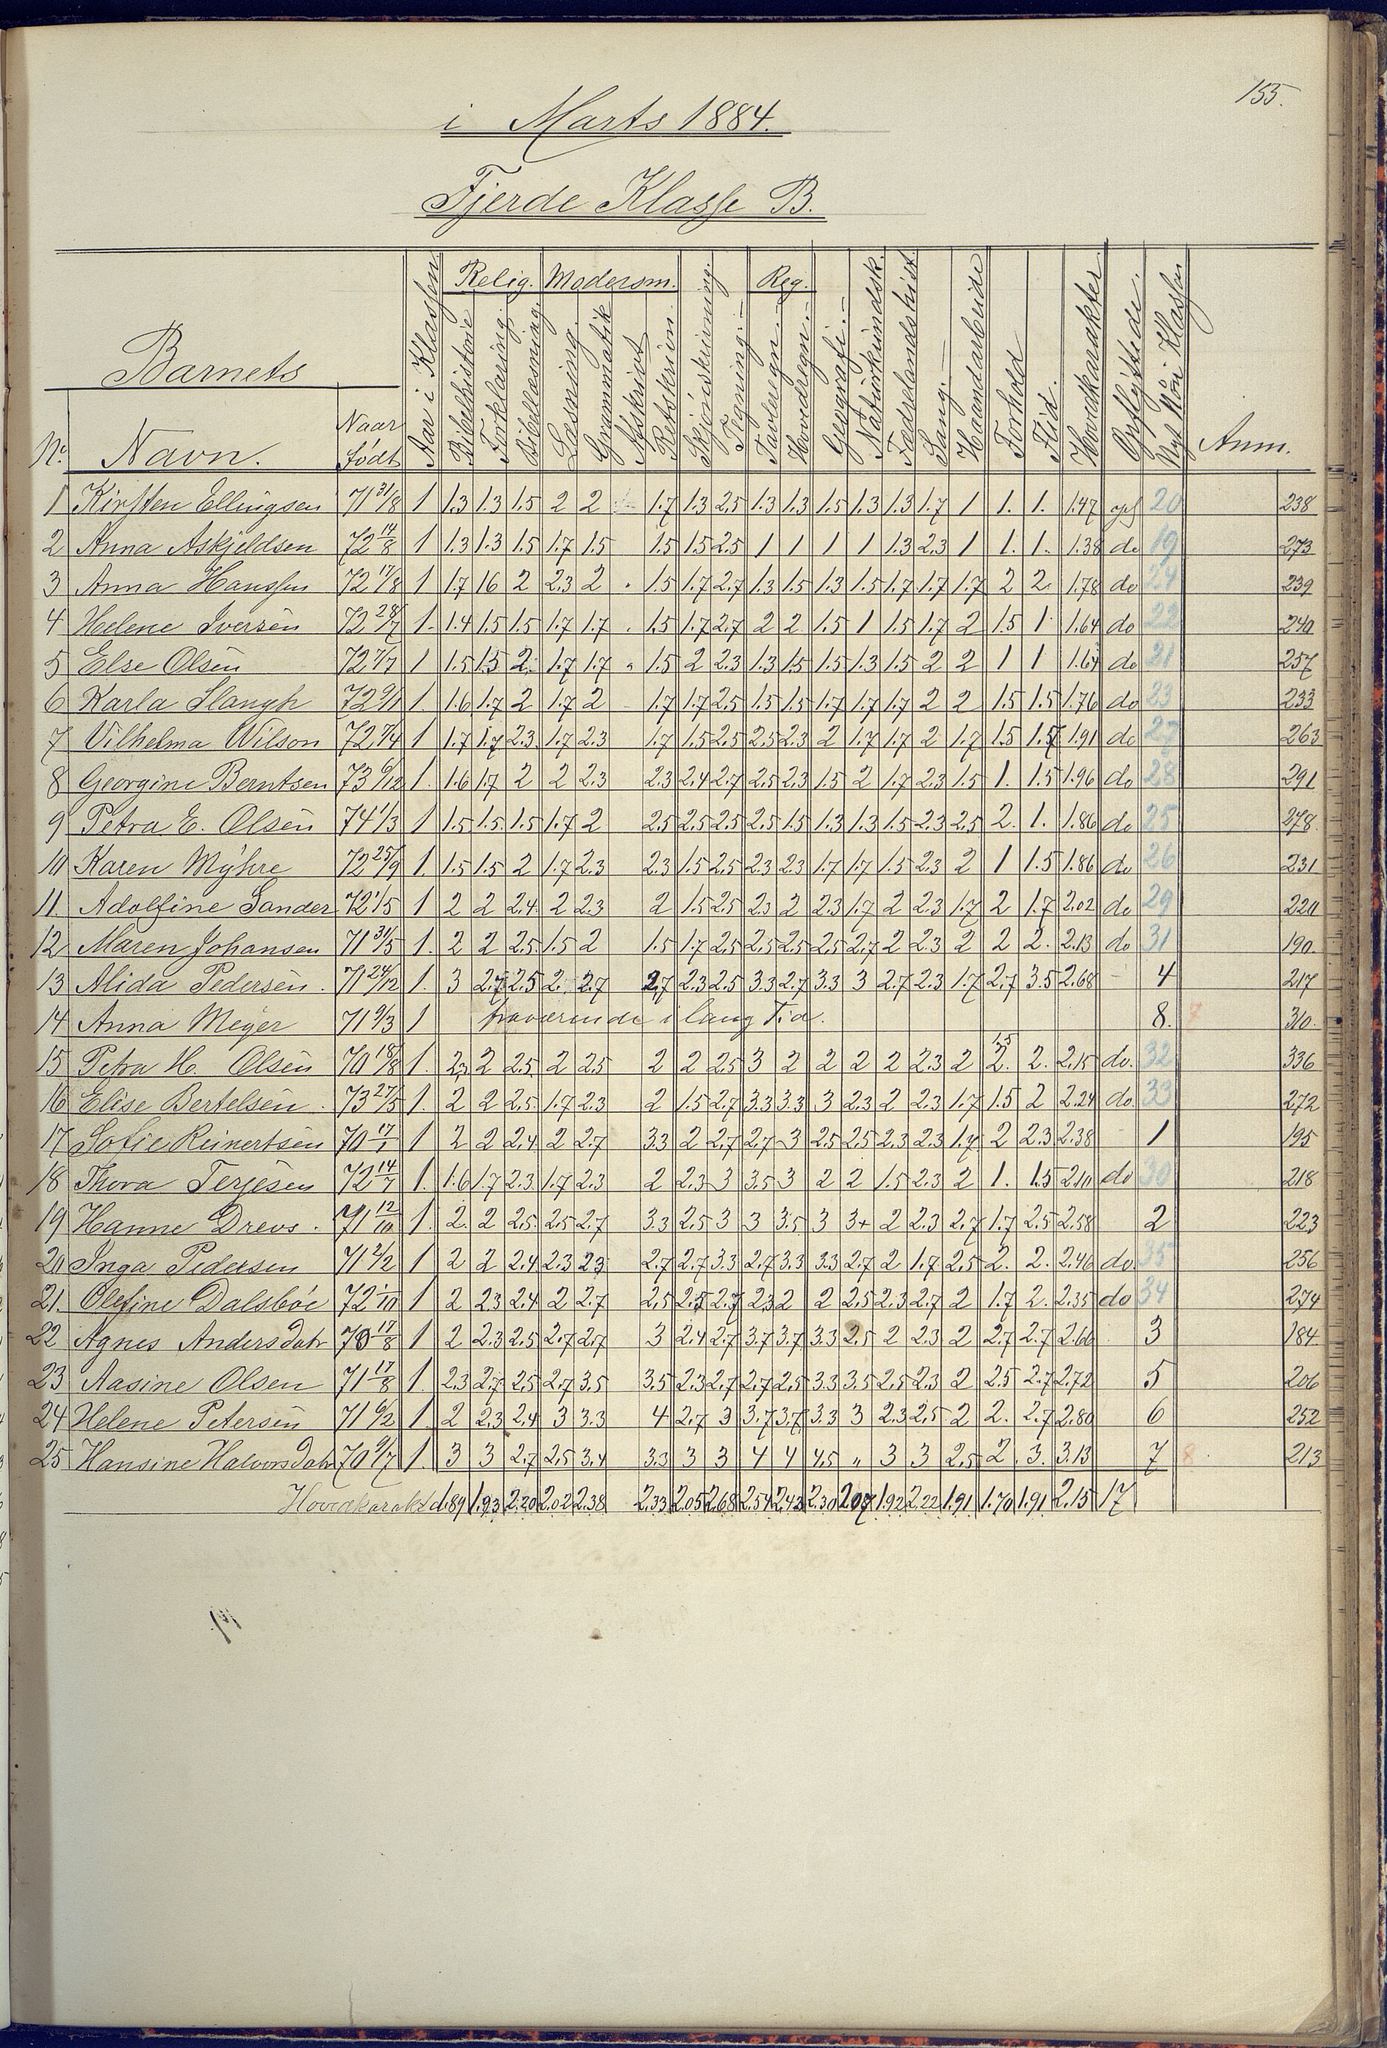 155.
i Marts 1884.
Fjerde Klasse B.
Barnets
Relig. Modersm. Reg.
No. Navn. Naar født Aar i Klassen. Bibelhistorie Forklaring. Bibellæsning. Læsning. Grammatik Afskrivt Retskrivn. Skjønskrivning. Tegning. Tavleregn. Hovedregn. Geografi. Naturkundsk. Fædrelandshist Sang. Haandarbeide Forhold Flid. Hovedkarakter Opflyttede. Nyt No i Klassen Anm.
1 Kirsten Ellingsen 71 31/8 1 1.3 1.3 1.5 2 2 1.7 1.3 2.5 1.3 1.3 1.5 1.3 1.3 1.7 1 1. 1. 1.47 opf 20 238
2 Anna Askjeldsen 72 14/8 1 1.3 1.3 1.5 1.7 1.5 1.5 1.5 2.5 1 1 1 1 1.3 2.3 1 1. 1. 1.38 do 19 273
3 Anna Hanssen 72 17/8 1 1.7 16 2 2.3 2 " 1.5 1.7 2.7 1.3 1.5 1.3 1.5 1.7 1.7 1.7 2 2. 1.78 do 24 239
4 Helene Iversen 72 28/7 1. 1.4 1.5 1.5 1.7 1.7 . 1.5 1.7 2.7 2 2 1.5 1 1.5 1.7 2 1.5 1 1.64 do 22 240
5 Else Olsen 72 7/7 1 1.5 1.5 2. 1.7 1.7 " 1.5 2 2.3 1.3 1.5 1.5 1.3 1.5 2 2 1 1 1.64 do 21 257
6 Karla Slangh 72 9/1 1. 1.6 1.7 2 1.7 2 1.7 1.7 2.5 1.5 1.5 1.7 1.7 1.7 2 2 1.5 1.5 1.76 do 23 233
7 Vilhelma Wilson 72 7/4 1 1.7 1.7 2.3. 1.7 2.3 1.7 1.5 2.5 2.5 2.3 2 1.7 1.7 2 1.7 1.5 1.7 1.91 do 27 263
8 Georgine Berntsen 73 6/12 1 1.6 1.7 2 2 2.3 2.3 2.4 2.7 2.5 2.3 1.5 2 1.7 2.3 1.5 1. 1.5 1.96 do 28 291
9 Petra E. Olsen 74 1/3 1 1.5 1.5. 1.5 1.7 2 2.5 2.5 2.5 2.5 1.5 1.3 1.3 1.5 2.3 2.5 2. 1. 1.86 do 25 278.
10 Karen Myhre 72 25/9 1. 1.5 1.5 2 1.7 2.3 2.3 1.5 2.5 2.3 2.3 1.7 1.7 1.5 2.3 2 1 1.5 1.86 do 26 231
11. Adolfine Sander 72 1/5 1 2 2 2.4 2 2.3 2 1.5 2.5 2.3 2 2.3 1.7 2 2.3 1.7 2 1.7 2.02 do 29 220
12 Maren Johansen 71 31/5 1. 2 2 2.5. 1.5 2 1.5 1.7 2.5 2.5 2.5 2.5 2.7 2 2.3 2 2 2. 2.13 do 31 190.
13 Alida Pedersen. 71 24/12 1. 3 2.7 2.5 2. 2.7 2.7 2.3 2.5 3.3 2.7 3.3 3 2.7 2.3 1.7 2.7 3.5 2.68 - 4 217
14 Anna Meyer 71 9/3 1 fraværende i lang Tid. 8. 7 310.
15 Petra H. Olsen 70 18/8 1. 2.3 2 2.5 2 2.5 2 2 2.5 3 2 2 2 2 2.3 2 1.5 2. 2. 2.15 do. 32 336
16 Elise Bertelsen. 73 27/5 1. 2 2 2.5 1.7 2.3 2 1.5 2.7 3.3 3.3 3 2.3 2 2.3 1.7 1.5 2 2.24 do. 33 272
17 Sofie Reinertsen 70 17/1 1 2 2 2.4 2 2.7 3.3 2 2.7 2.7 3 2.5 2.5 2.3 2.3 1.7 2 2.3 2.38 1 195
18 Thora Terjesen 72 14/7 1. 1.6 1.7 2.3 1.7 2.3 2 2.3 3 3.5 3 2 2 1.5 2.3 2 1. 1.5 2.10 do 30 218
19 Hanne Drevs. 71 12/10 1. 2. 2 2.5. 2.5 2.7 3.3 2.5 3 3 3.5 3 3+ 2 2.3 2.7 1.7 2.5 2.58 2 223
20 Inga Pedersen 71 2/2 1 2 2 2.4 2.3 2.3 2.7 2.7 3.3 2.7 3.3 3.3 2.7 2 1.7 2.5 2. 2. 2.46 do. 35 256
21. Olefine Dalsböe 72 1/10 1 2 2.3 2.4 2 2.7 2.5 2.5 2.7 2.3 2 2 2.5 2.3 2.7 2 1.7 2. 2.35 do 34 274
22 Agnes Andersdatr 70 17/8 1 2 2.3 2.5 2.7 2.7 3 2.4 2.7 3.7 3.7 3.3 2.5 2 2.3 2 2.7 2.7 2.66 3 184.
23 Aasine Olsen 71 17/8 1. 2.3 2.7 2.5 2.7 3.5 3.5 2.3 2.7 2.7 2.5 3.3 3.5 2.5 2.3 2 2.5 2.7 2.72 5 206
24 Helene Petersen 71 6/2 1. 2 2.3 2.4 3 3.3 4 2.7 3 3.7 3.7 3.3 3 2.3 2.5 2 2. 2.7 2.80 6 252
25 Hansine Halvorsdatr 70 9/7 1. 3 3 2.7 2.5 3.4 3.3 3 3 4 4 4.5 " 3 3 2.5 2 3. 3.13 7 8 213
Hovedkarakt. 1.89 1.93 2.20 2.02 2.38 2.33 2.05 2.68 2.54 2.43 2.30 2.07 1.92 2.22 1.91 1.70 1.91 2.15 17